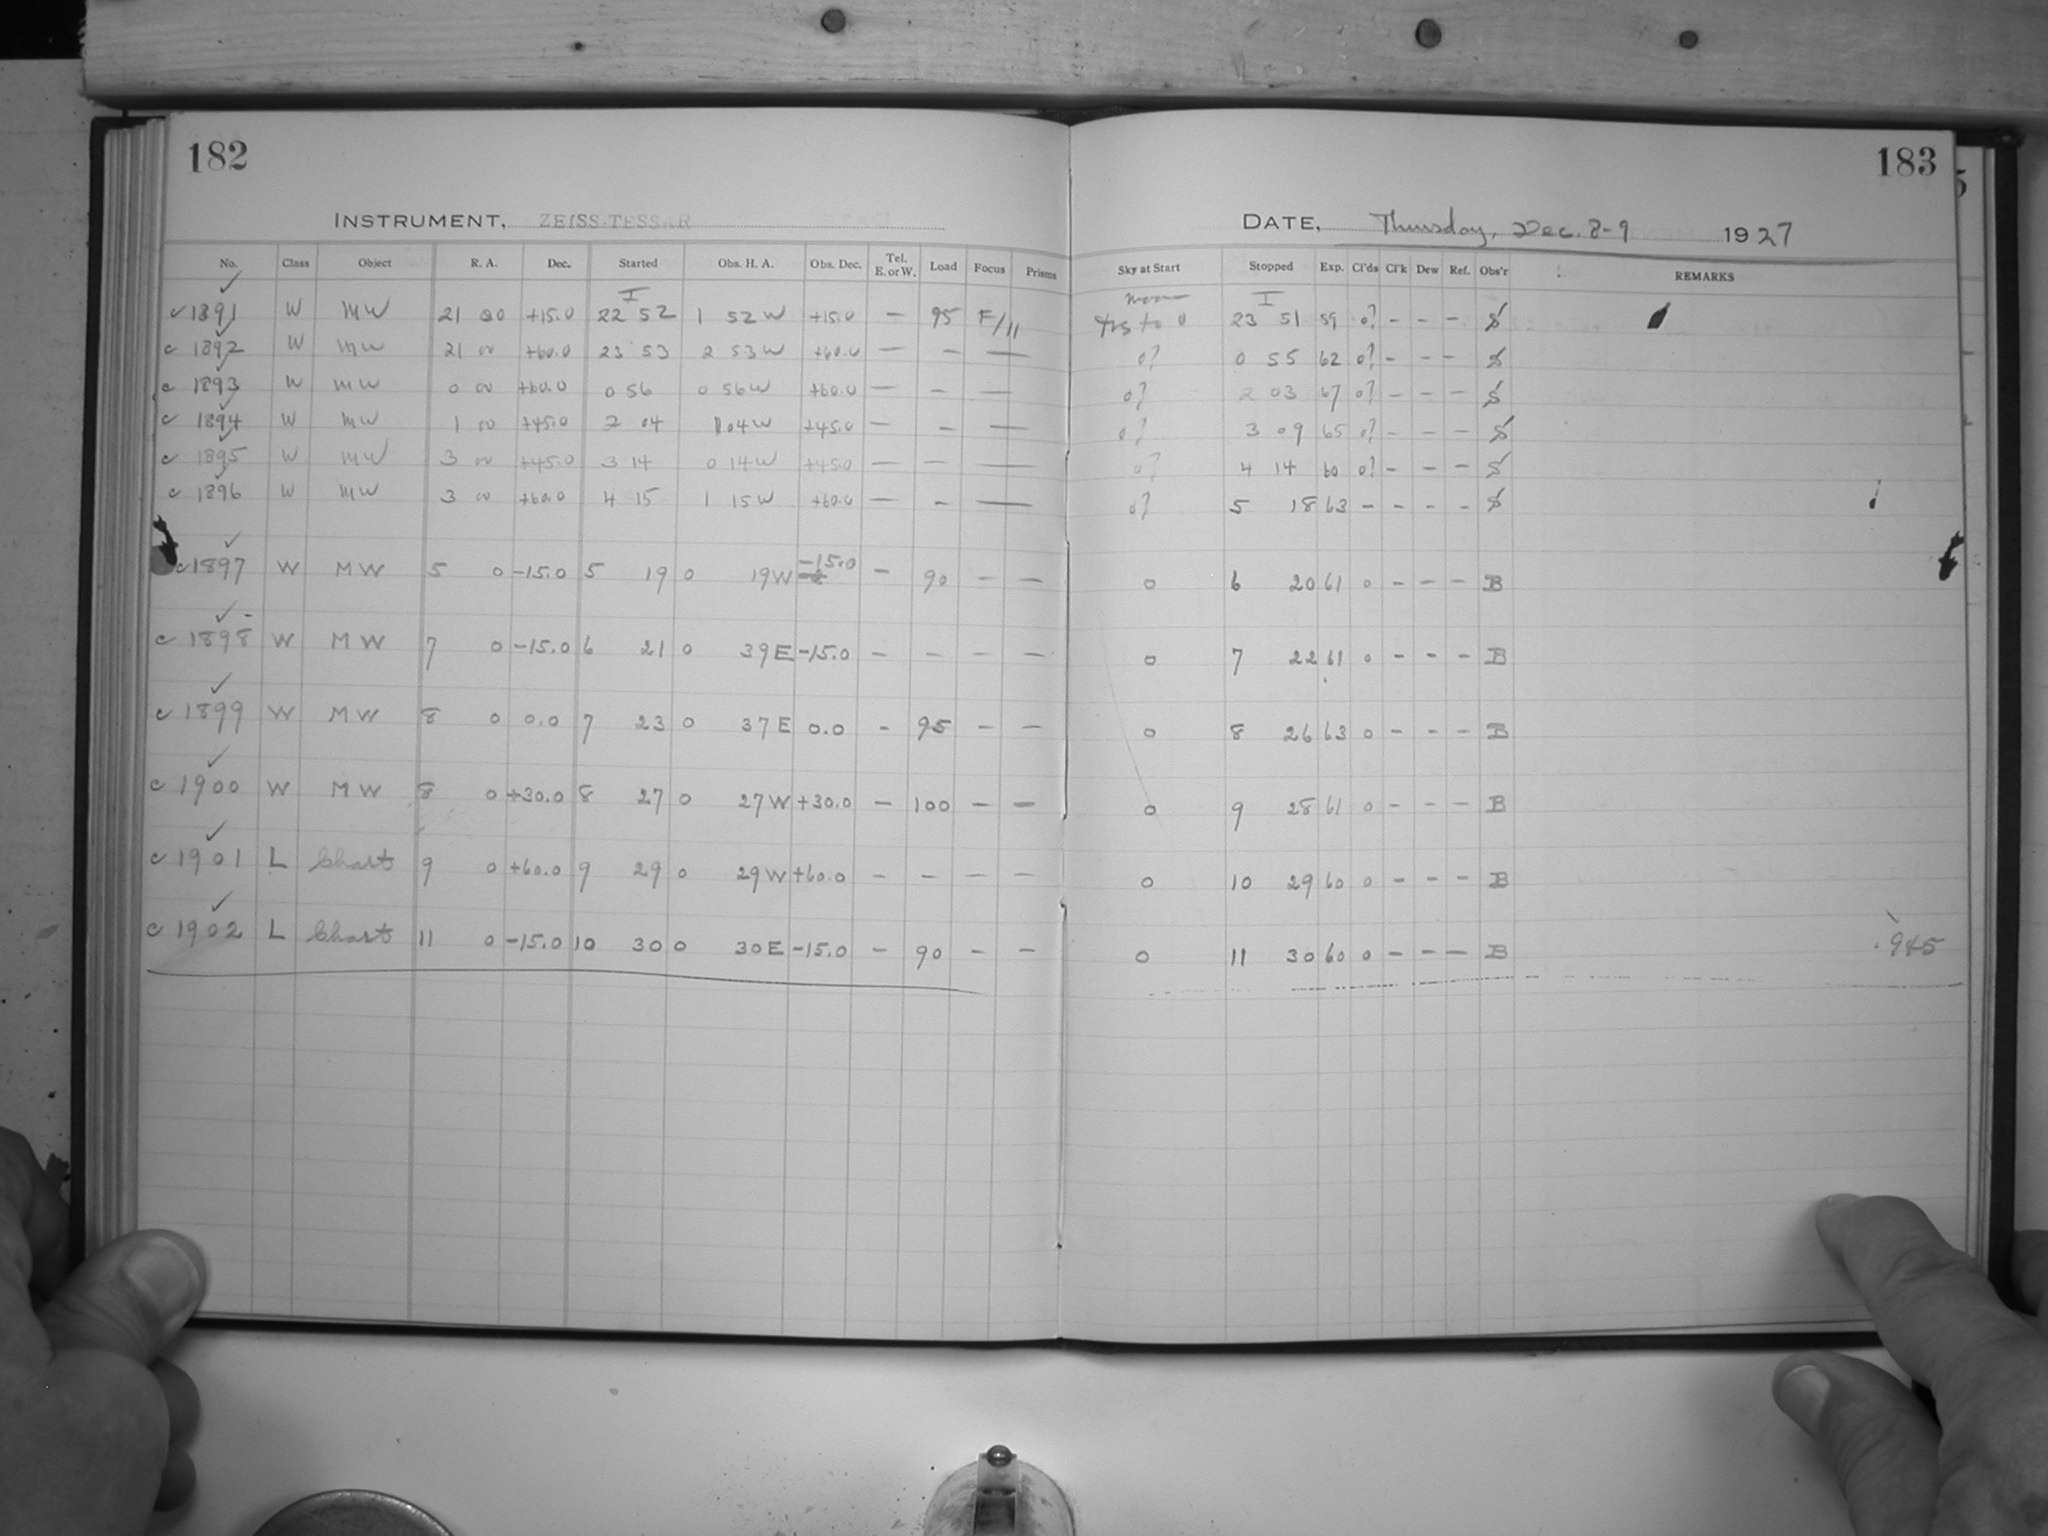 182
183
INSTRUMENT, ZEISS-TESSAR
DATE, Thursday, Dec. 8-9 1927
No. Class Object R. A. Dec. Started Obs. H. A. Obs. Dec. Tel. E. or W. Load Focus Prisms Sky at Start Stopped Exp. Cl'ds Cl'k Dew Ref. Obs'r REMARKS
I moon I
c 1891 W MW 21 00 +15.0 22 52 1 52 W +15.0 — 95 F/11 23 51 59 0? - - - S
c 1892 W MW 21 00 +60.0 23 53 2 53 W +60.0 — - — 0? 0 55 62 0? - - - S
c 1893 W MW 0 00 +60.0 0 56 0 56 W +60.0 — - — 0? 2 03 67 0? - - - S
c 1894 W MW 1 00 +45.0 2 04 1 04 W +45.0 — - — 0? 3 09 65 0? - - - S
c 1895 W MW 3 00 +45.0 3 14 0 14 W +45.0 — - — 0? 4 14 60 0? - - - S
c 1896 W MW 3 00 +60.0 4 15 1 15 W +60.0 — - — 0? 5 18 63 - - - - S
c 1897 W MW 5 0 -15.0 5 19 0 19 W -15.0 - 90 - - 0 6 20 61 0 - - - B
c 1898 W MW 7 0 -15.0 6 21 0 39 E -15.0 - - - - 0 7 22 61 0 - - - B
c 1899 W MW 8 0 0.0 7 23 0 37 E 0.0 - 95 - - 0 8 26 63 0 - - - B
c 1900 W MW 8 0 +30.0 8 27 0 27 W +30.0 - 100 - - 0 9 28 61 0 - - - B
c 1901 L Chart 9 0 +60.0 9 29 0 29 W +60.0 - - - - 0 10 29 60 0 - - - B
c 1902 L Chart 11 0 -15.0 10 30 0 30 E -15.0 - 90 - - 0 11 30 60 0 - - - B .945